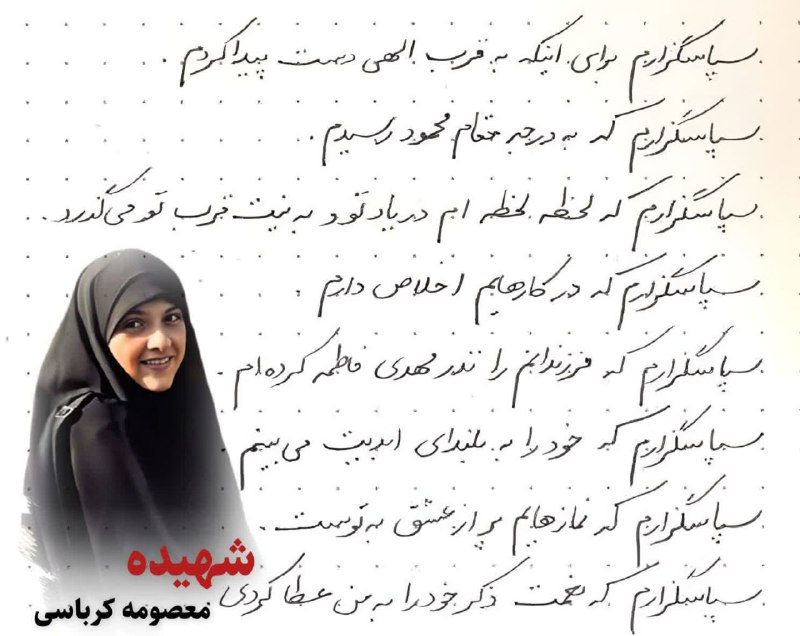 سپاسگزارم برای اینکه به قرب الهی دست پیدا کردم.
سپاسگزارم که به درجه مقام محمود رسیدم.
سپاسگزارم که لحظه لحظه ام در یاد تو و به نیت قرب تو می گذرد.
سپاسگزارم که در کارهایم اخلاص دارم.
سپاسگزارم که فرزندانم را نذر مهدی فاطمه کرده ام
سپاسگزارم که خود را به بلندای ابدیت می بینم
سپاسگزارم که نمازهایم پر از عشق به توست.
سپاسگزارم که نعمت ذکر خود را به من عطا کردی
شهیده
معصومه کرباسی